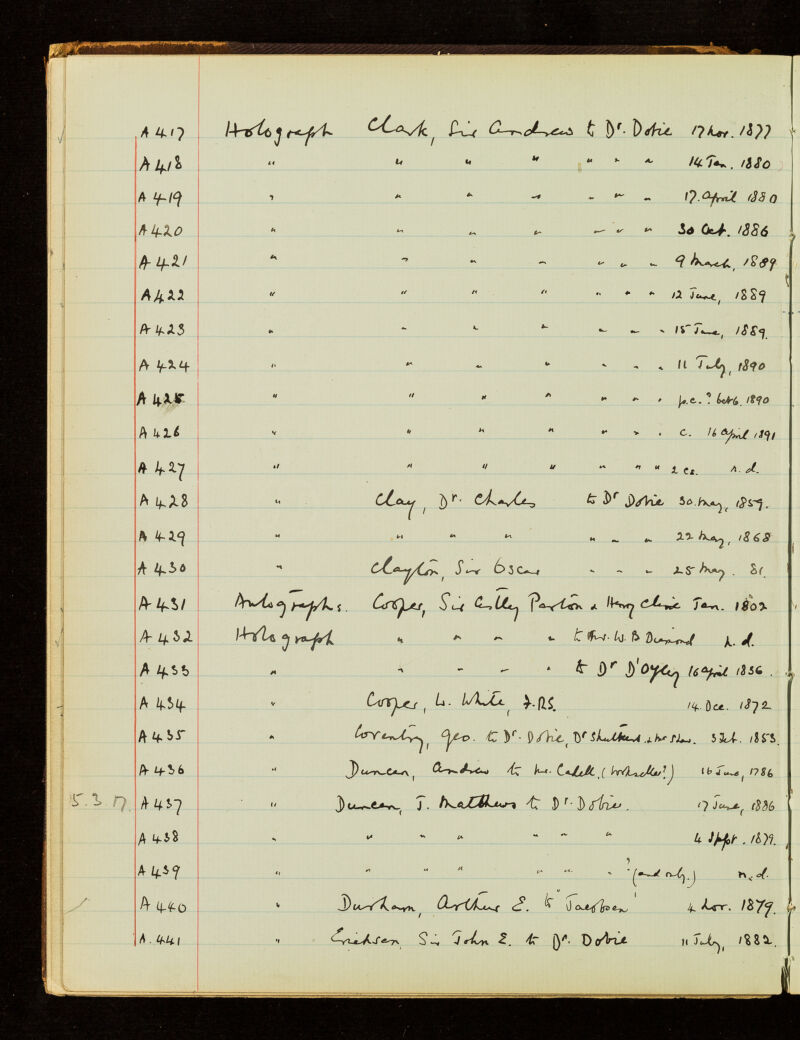 A 417 Holograph Clark, Sir Andrew to Dr. Dobie 17 Nov. 1877
A 418 " " " " " " " 14 Jan. 1880
A 419 " " " " " " " 17. April 1880
A 420 " " " " " " " 30 Oct. 1886
A 421 " " " " " " " 9 March, 1889
A 422 " " " " " " " 12 June, 1889
A 423 " " " " " " " 15 June, 1889.
A 424 " " " " " " " 11 July, 1890
A 425 " " " " " " " p.c. ? Oct 6. 1890
A 426 " " " " " " " c. 16 April 1891
A 427 " " " " " " " 2 cs. n.d.
A 428 " Clay, Dr. Charles to Dr Dobie 30. May, 1859.
A 429 " " " " " " " 22 May, 1868
A 430 " Clayton, Sir Oscar " " " 25 May. 81.
A 431 Autographs. Cooper, Sir Astley Paston & Henry Cline Jan. 1802
A 432 Holograph " " " " to W. B n.d.
A 433 " " " " " to Dr D'Oyley 16 April 1836.
A 434 " Cooper, W. White, F.R.S. 14. Dec. 1872
A 435 " Coventry, Geo. to Dr. Dobie, Dr & Mr Shaw. 3 1853.
A 436 " Duncan, Andrew to Mr. Cadell, (bookseller?) 16 June, 1786
5.3.17 A 437 " Duncan, J. Matthews to Dr. Dobie. 17 June, 1886
A 438 " " " " " " " 4 Sept. 1879.
A 439 " " " " " " " ? (end only.) n.d.
A 440 " Durham, Arthur E. to "Jacobsen" 4 Nov. 1879.
A. 441 " Erichsen, Sir John E. to Dr. Dobie 11 July, 1882.